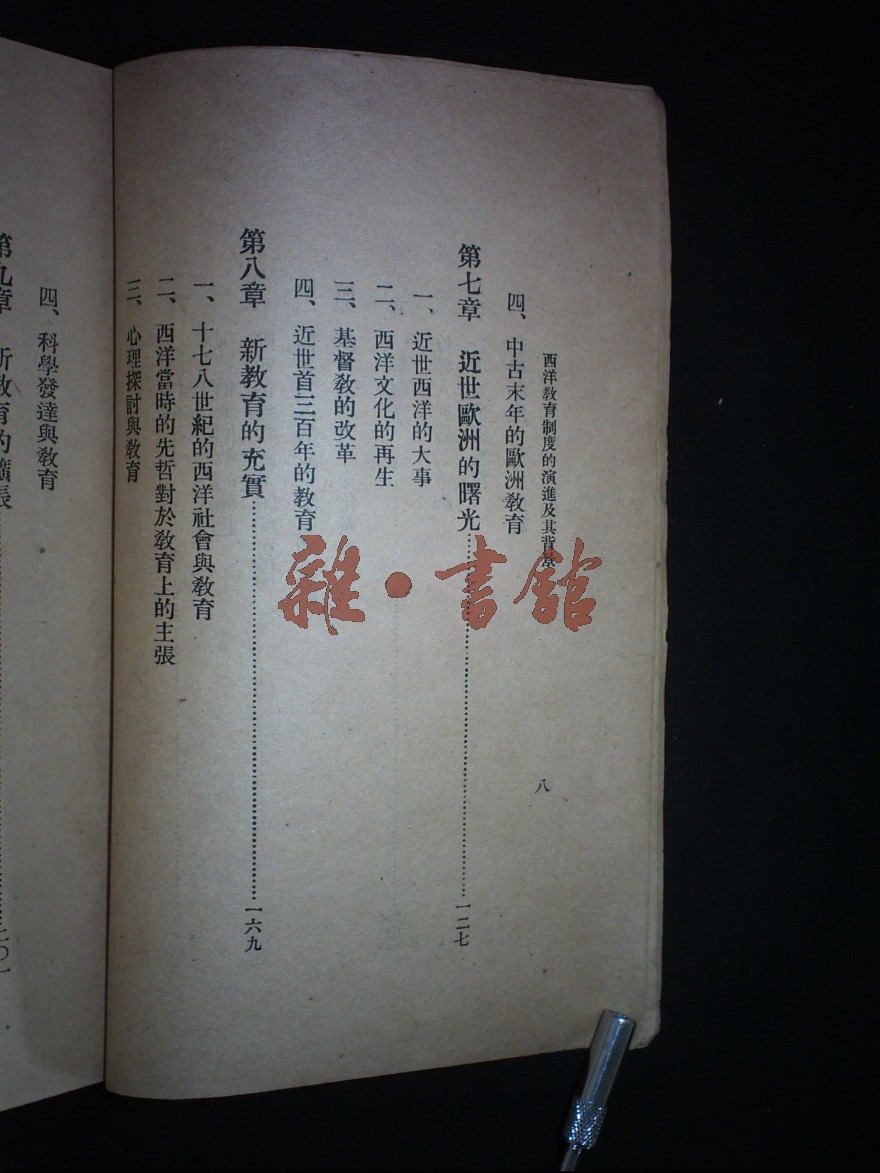 西洋教育制度的演進及其背景
八
四、中古末年的歐洲教育
第七章 近世歐洲的曙光……一二七
一、近世西洋的大事
二、西洋文化的再生
三、基督教的改革
四、近世首三百年的教育
第八章 新教育的充實……一六九
一、十七八世紀的西洋社會與教育
二、西洋當時的先哲對於教育上的主張
三、心理探討與教育
四、科學發達與教育
第九章 新教育的擴張……二〇一
雜·書館